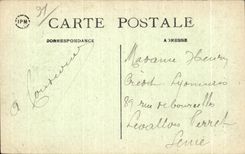 IPM
CARTE POSTALE
CORRESPONDANCE
ADRESSE
Madame Henry
Crédit Lyonnais
89 rue de Courcelles
Levallois Perret
Seine
à